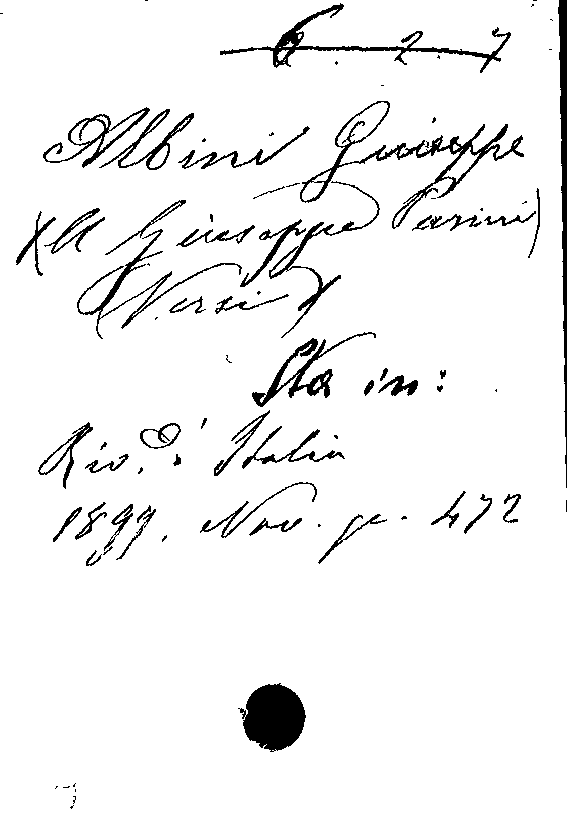 6. 2. 7
Albini Giuseppe
(A Giuseppe Parini)
(Versi)
Sta in:
Riv. d' Italia
1899. Nov. p. 472